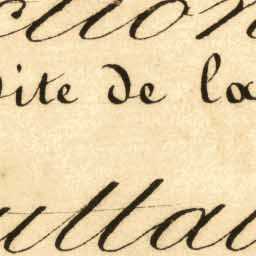 ction
dite de la
utta